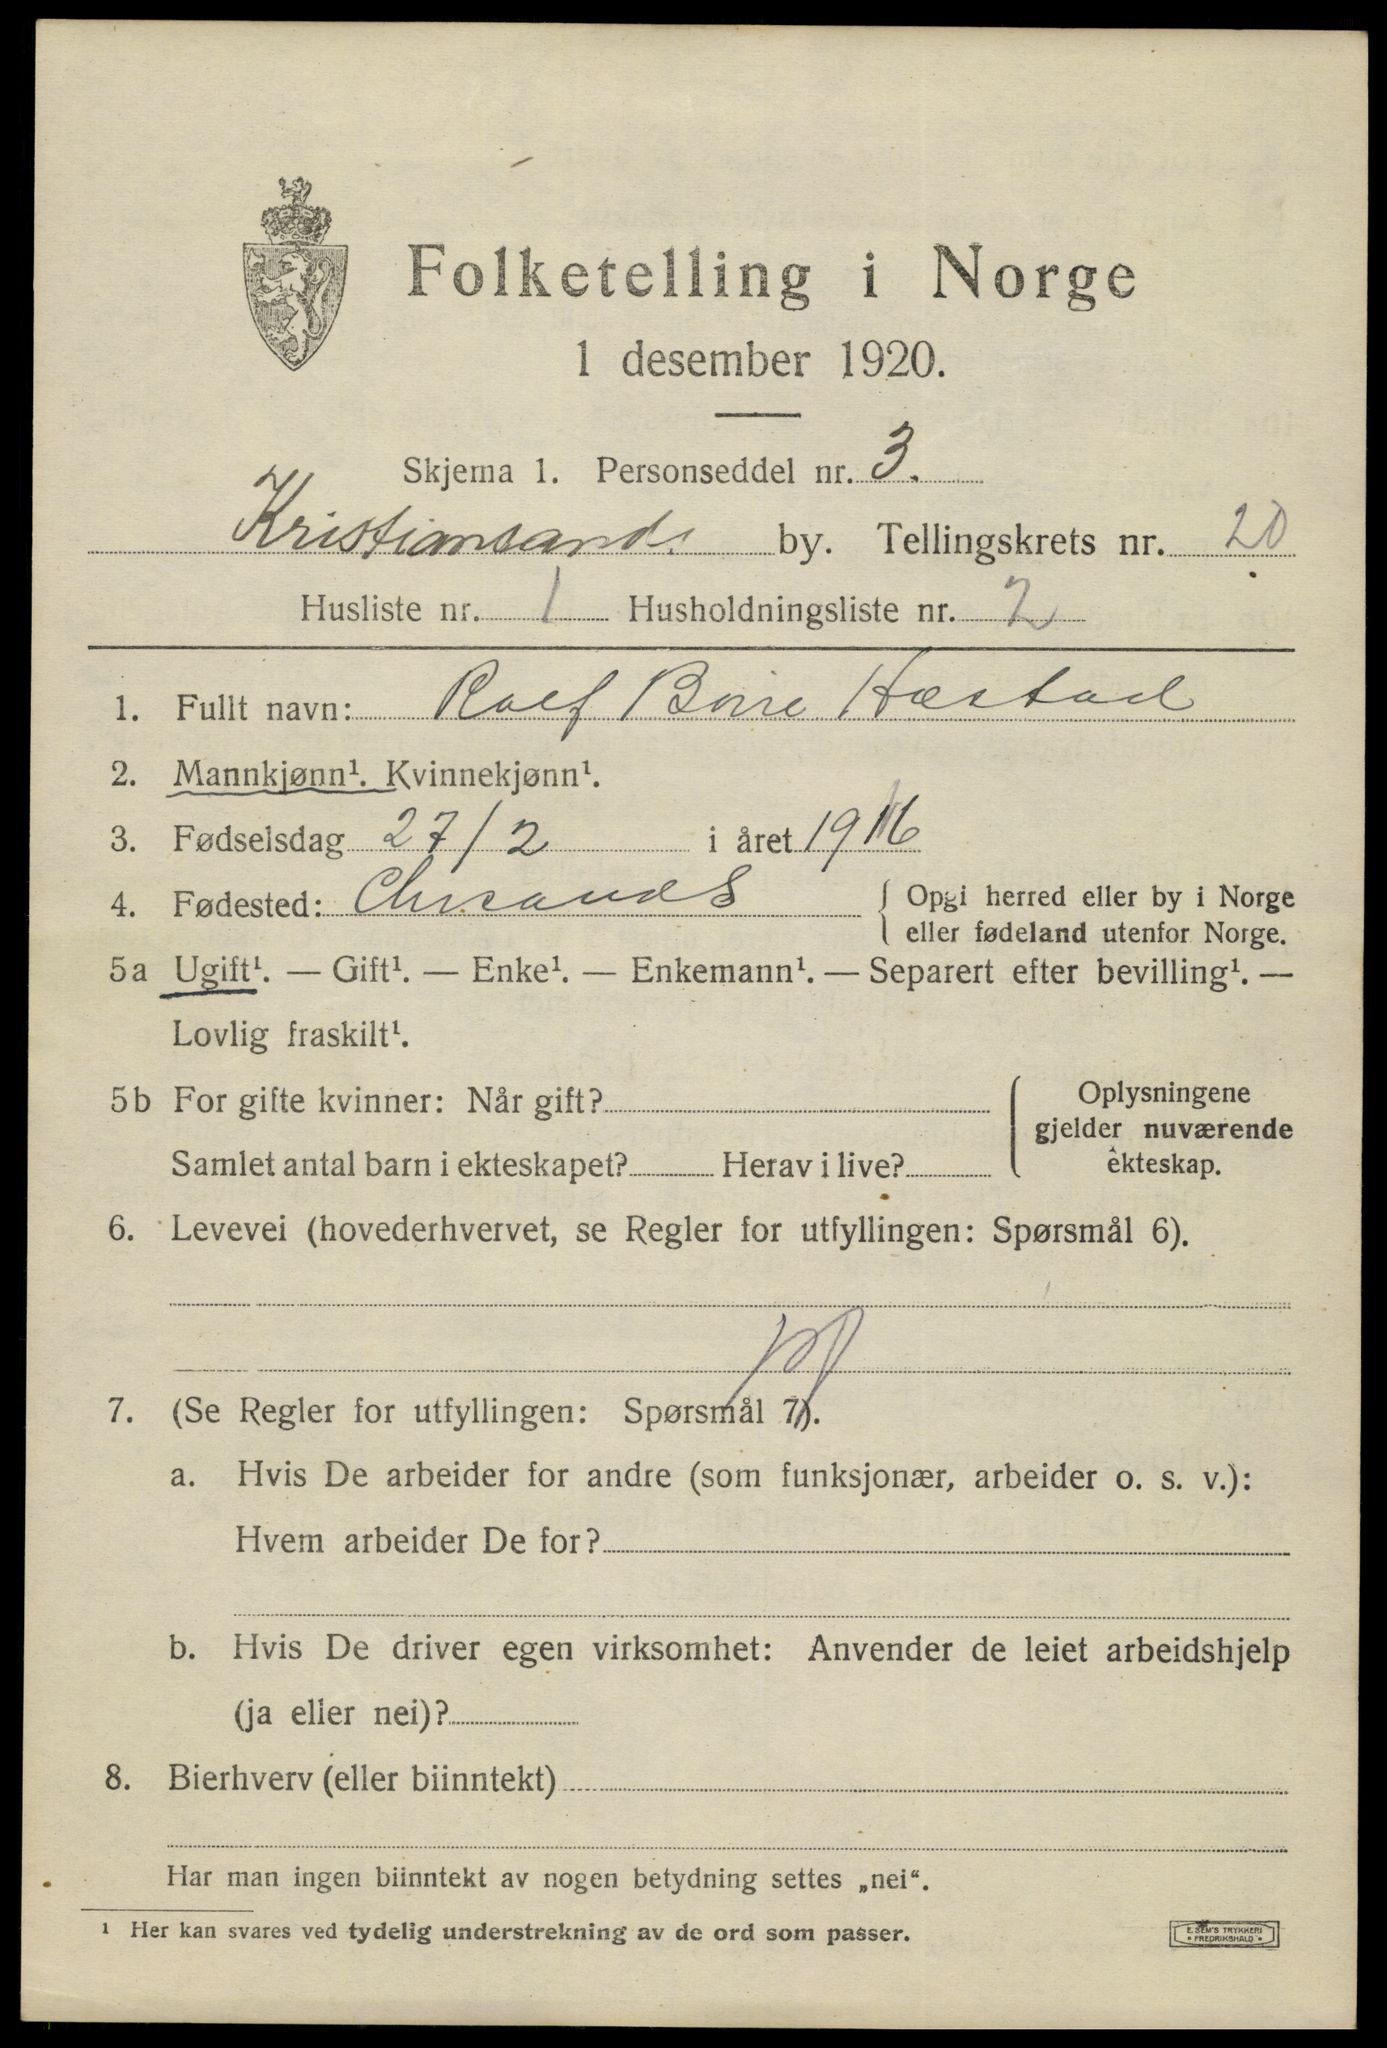 Folketelling i Norge
1 desember 1920.
Skjema 1. Personseddel nr. 3.
Kristiansands by. Tellingskrets nr. 20
Husliste nr. 1 Husholdningsliste nr. 2
1. Fullt navn: Rolf Hæstad
2. Mannkjønn¹. Kvinnekjønn¹.
3. Fødselsdag 27/2 i året 1916
4. Fødested: Chrsands { Opgi herred eller by i Norge
eller fødeland utenfor Norge.
5a Ugift¹. — Gift¹. — Enke¹. — Enkemann¹. — Separert efter bevilling¹. —
Lovlig fraskilt¹.
5b For gifte kvinner: Når gift? Oplysningene
gjelder nuværende
Samlet antal barn i ekteskapet? Herav i live? ekteskap.
6. Levevei (hovederhvervet, se Regler for utfyllingen: Spørsmål 6).
7. (Se Regler for utfyllingen: Spørsmål 7).
a. Hvis De arbeider for andre (som funksjonær, arbeider o. s. v.):
Hvem arbeider De for?
b. Hvis De driver egen virksomhet: Anvender de leiet arbeidshjelp
(ja eller nei)?
8. Bierhverv (eller biinntekt)
Har man ingen biinntekt av nogen betydning settes „nei“.
¹ Her kan svares ved tydelig understrekning av de ord som passer.
E. SEM'S TRYKKERI
• FREDRIKSHALD •